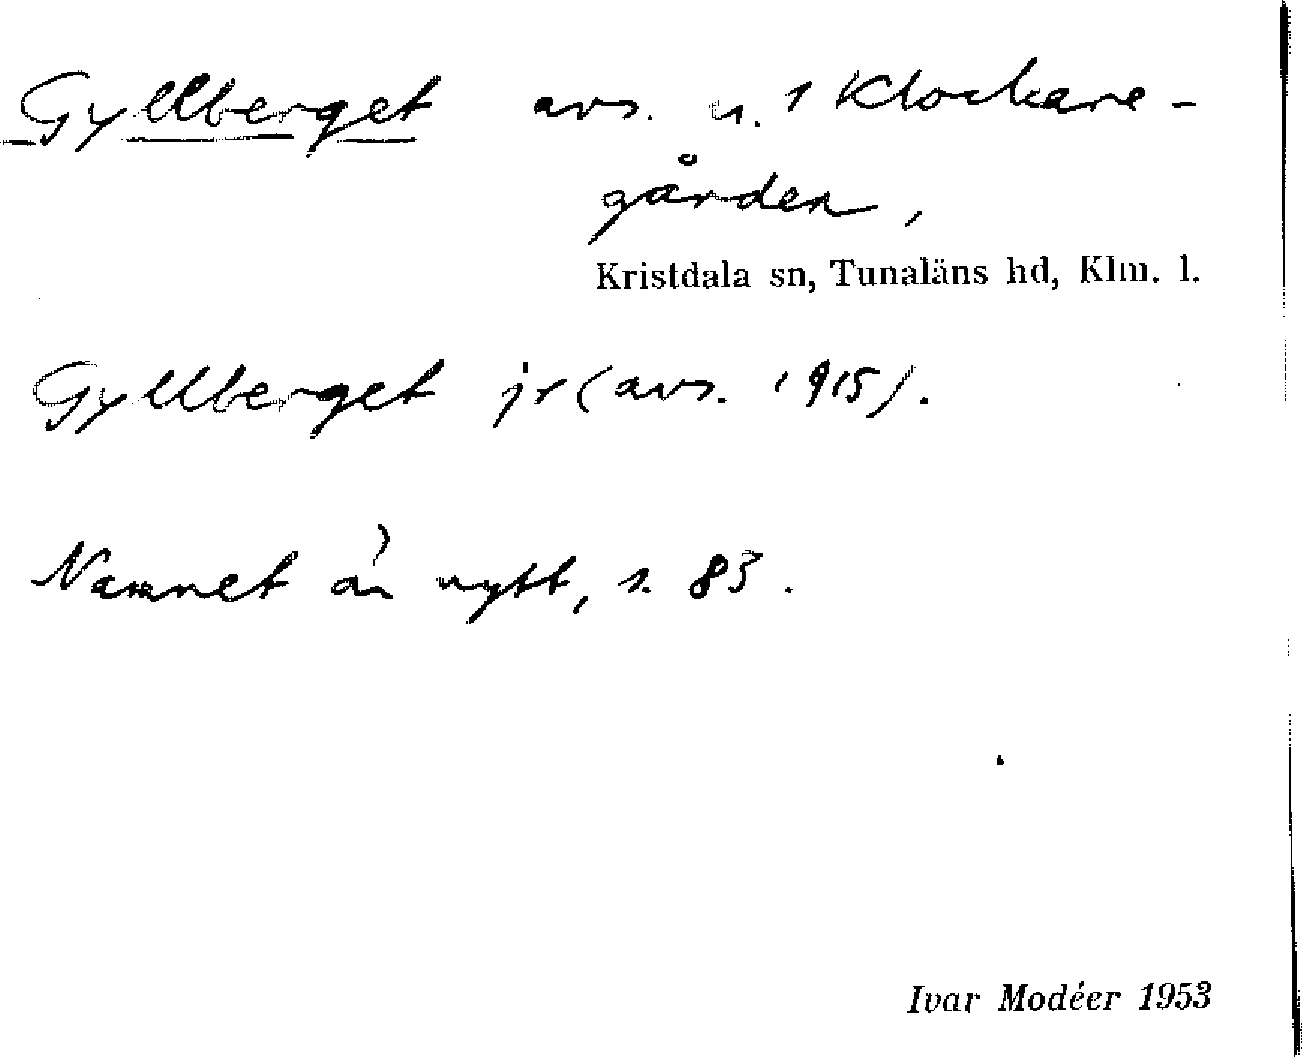 Gyllberget avs. u. 1 Klockare-
gården,
Kristdala sn, Tunaläns hd, Klm. l.
Gyllberget jr (avs. 1915).
Namnet är nytt, s. 83.
Ivar Modéer 1953